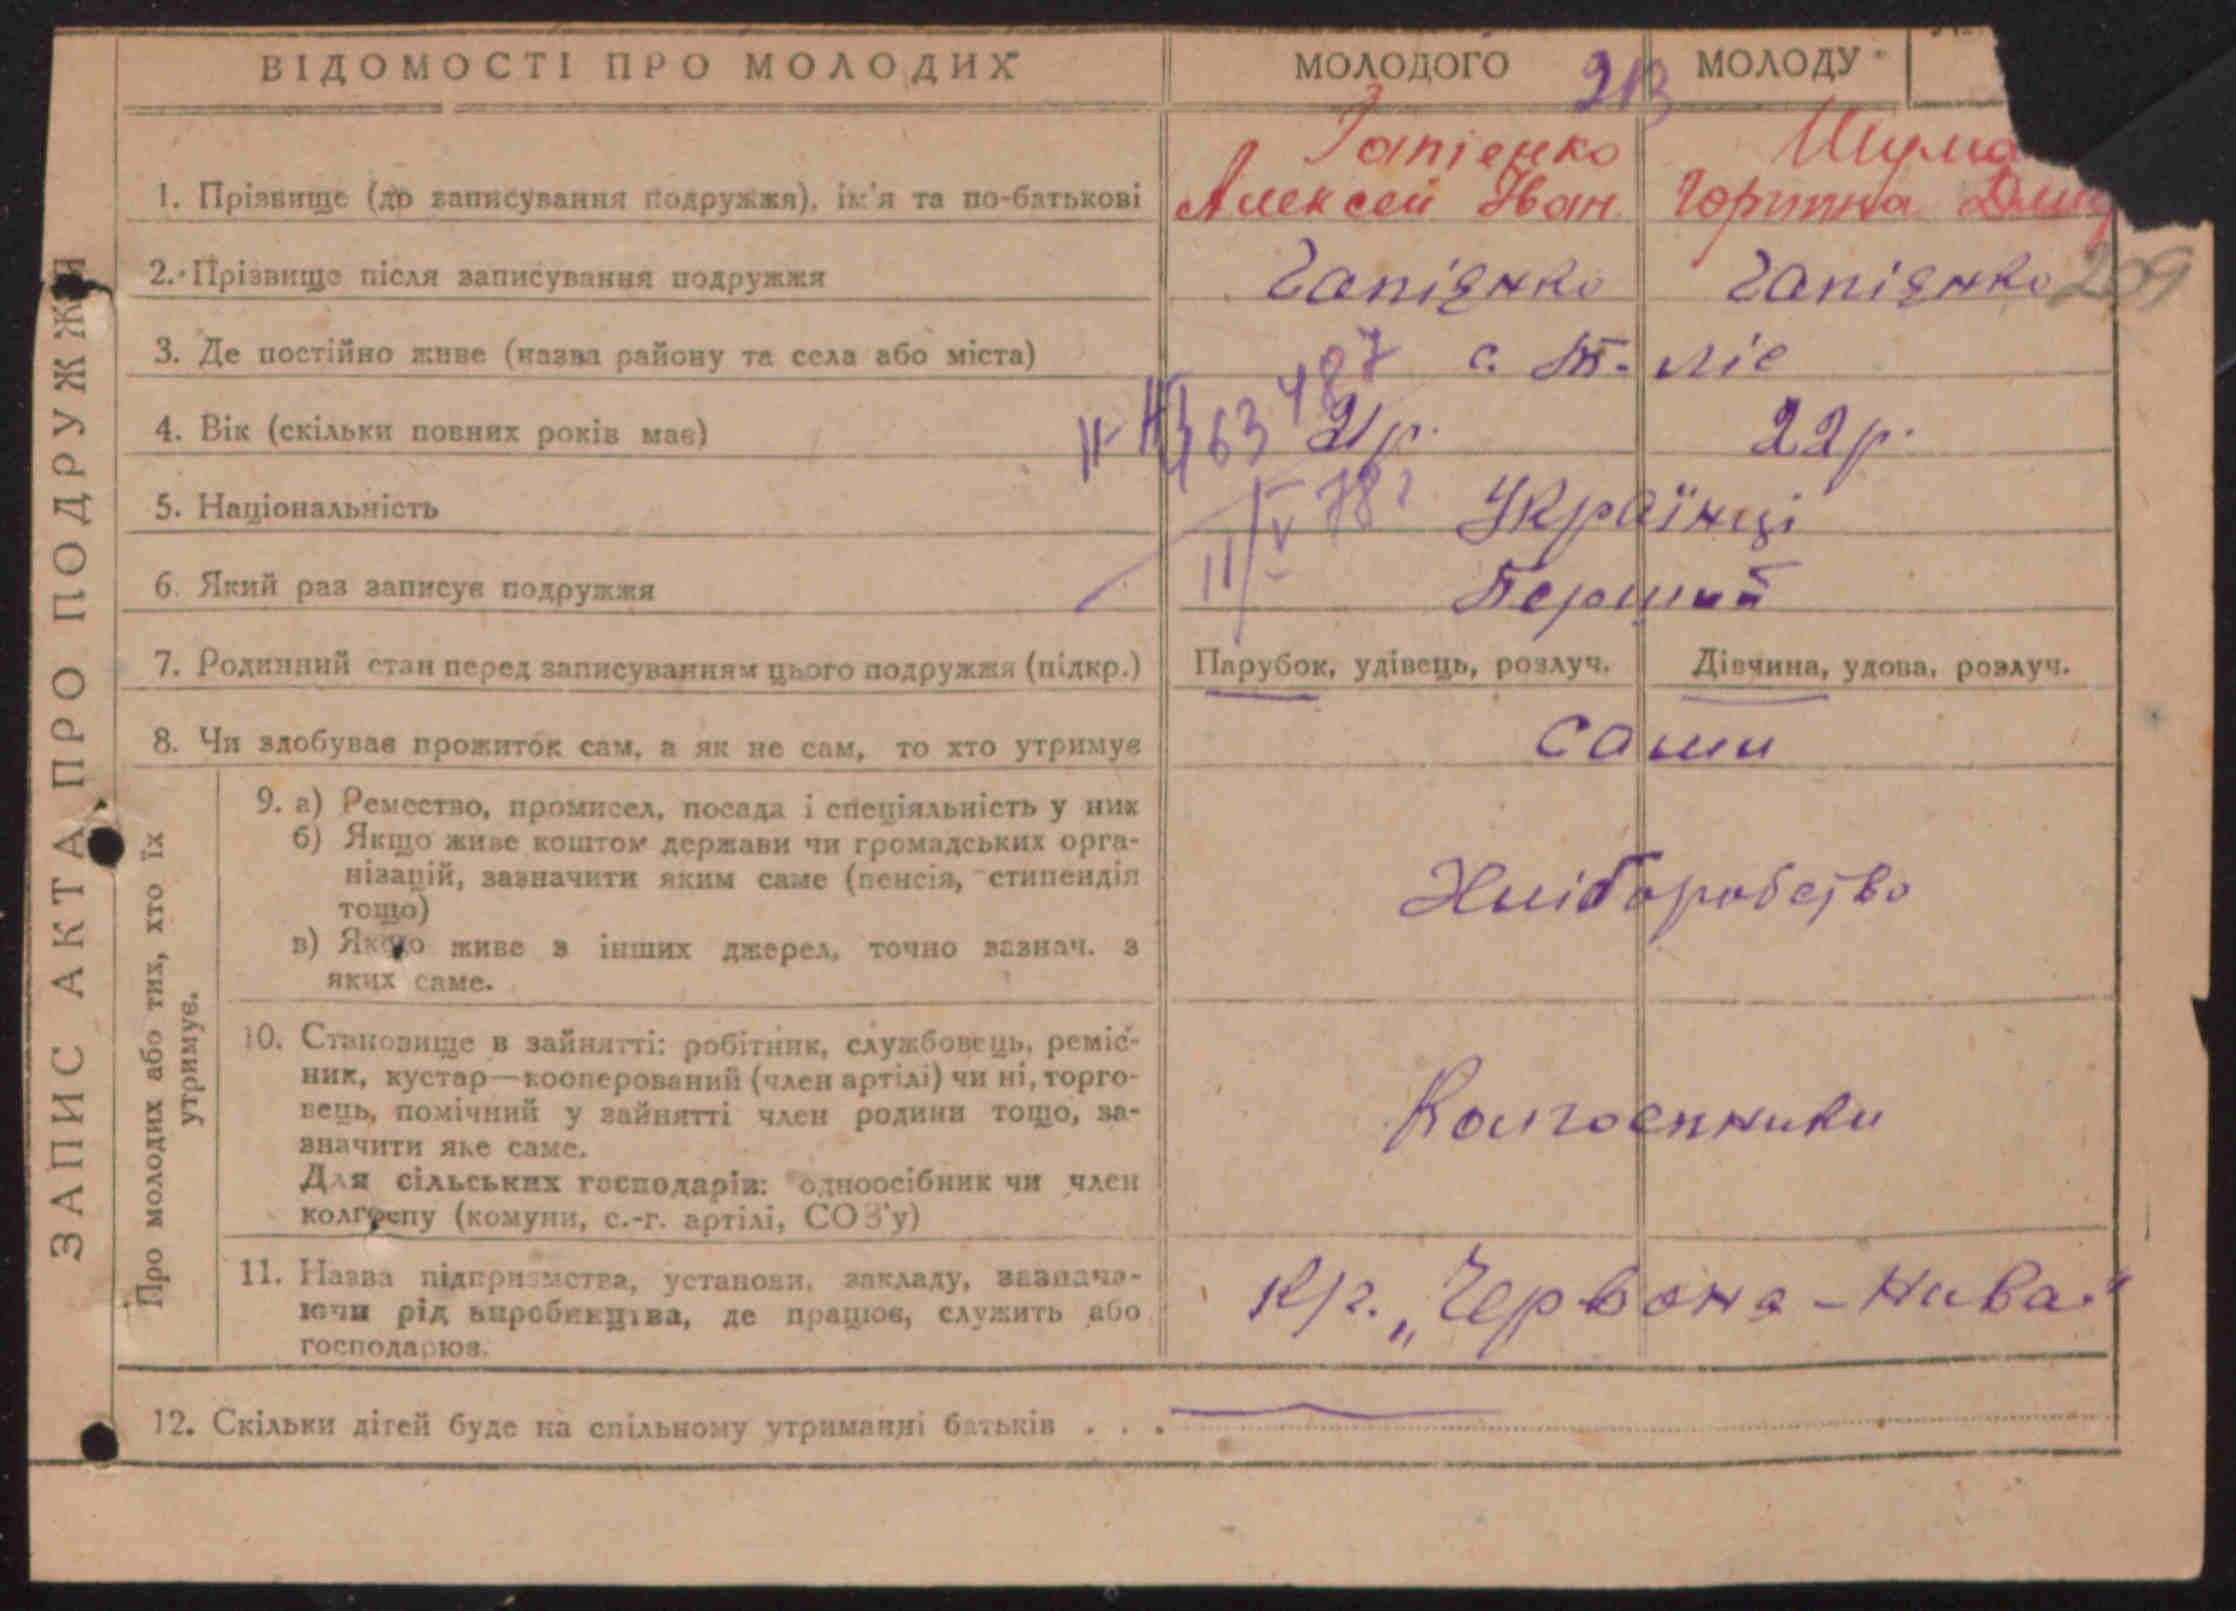 ВІДОМОСТІ ПРО МОЛОДИХ МОЛОДОГО МОЛОДУ
Гапієнко
1. Прізвище (до записування подружжя), ім'я та по-батькові Алексей Іван. Горпина
2. Прізвище після записування подружжя Гапієнко Гапієнко 209
3. Де постійно живе (назва району та села або міста) с. Т. ліс
4. Вік (скільки повних років має) 21 р. 22 р.
5. Національність Українці
6. Який раз записує подружжя Перший
7. Родинний стан перед записуванням цього подружжя (підкр.) Парубок, удівець, розлуч. Дівчина, удова, розлуч.
8. Чи здобуває прожиток сам, а як не сам, то хто утримує сами
9. а) Ремество, промисел, посада і спеціяльність у них
б) Якщо живе коштом держави чи громадських орга-
нізацій, зазначити яким саме (пенсія, стипендія
тощо)
Хліборобство
в) Якщо живе з інших джерел, точно зазнач. з
яких саме.
10. Становище в зайнятті: робітник, службовець, реміс-
ник, кустар—кооперований (член артілі) чи ні, торго-
вець, помічний у зайнятті член родини тощо, за-
значити яке саме.
Колгоспники
Для сільських господарів: одноосібник чи член
колгоспу (комуни, с.-г. артілі, СОЗ'у)
11. Назва підприємства, установи, закладу, зазнача-
ючи рід виробництва, де працює, служить або
господарює.
„Червона-Нива"
12. Скільки дітей буде на спільному утриманні батьків . . .
ЗАПИС АКТА ПРО ПОДРУЖЖЯ
Про молодих або тих, хто їх
утримує.